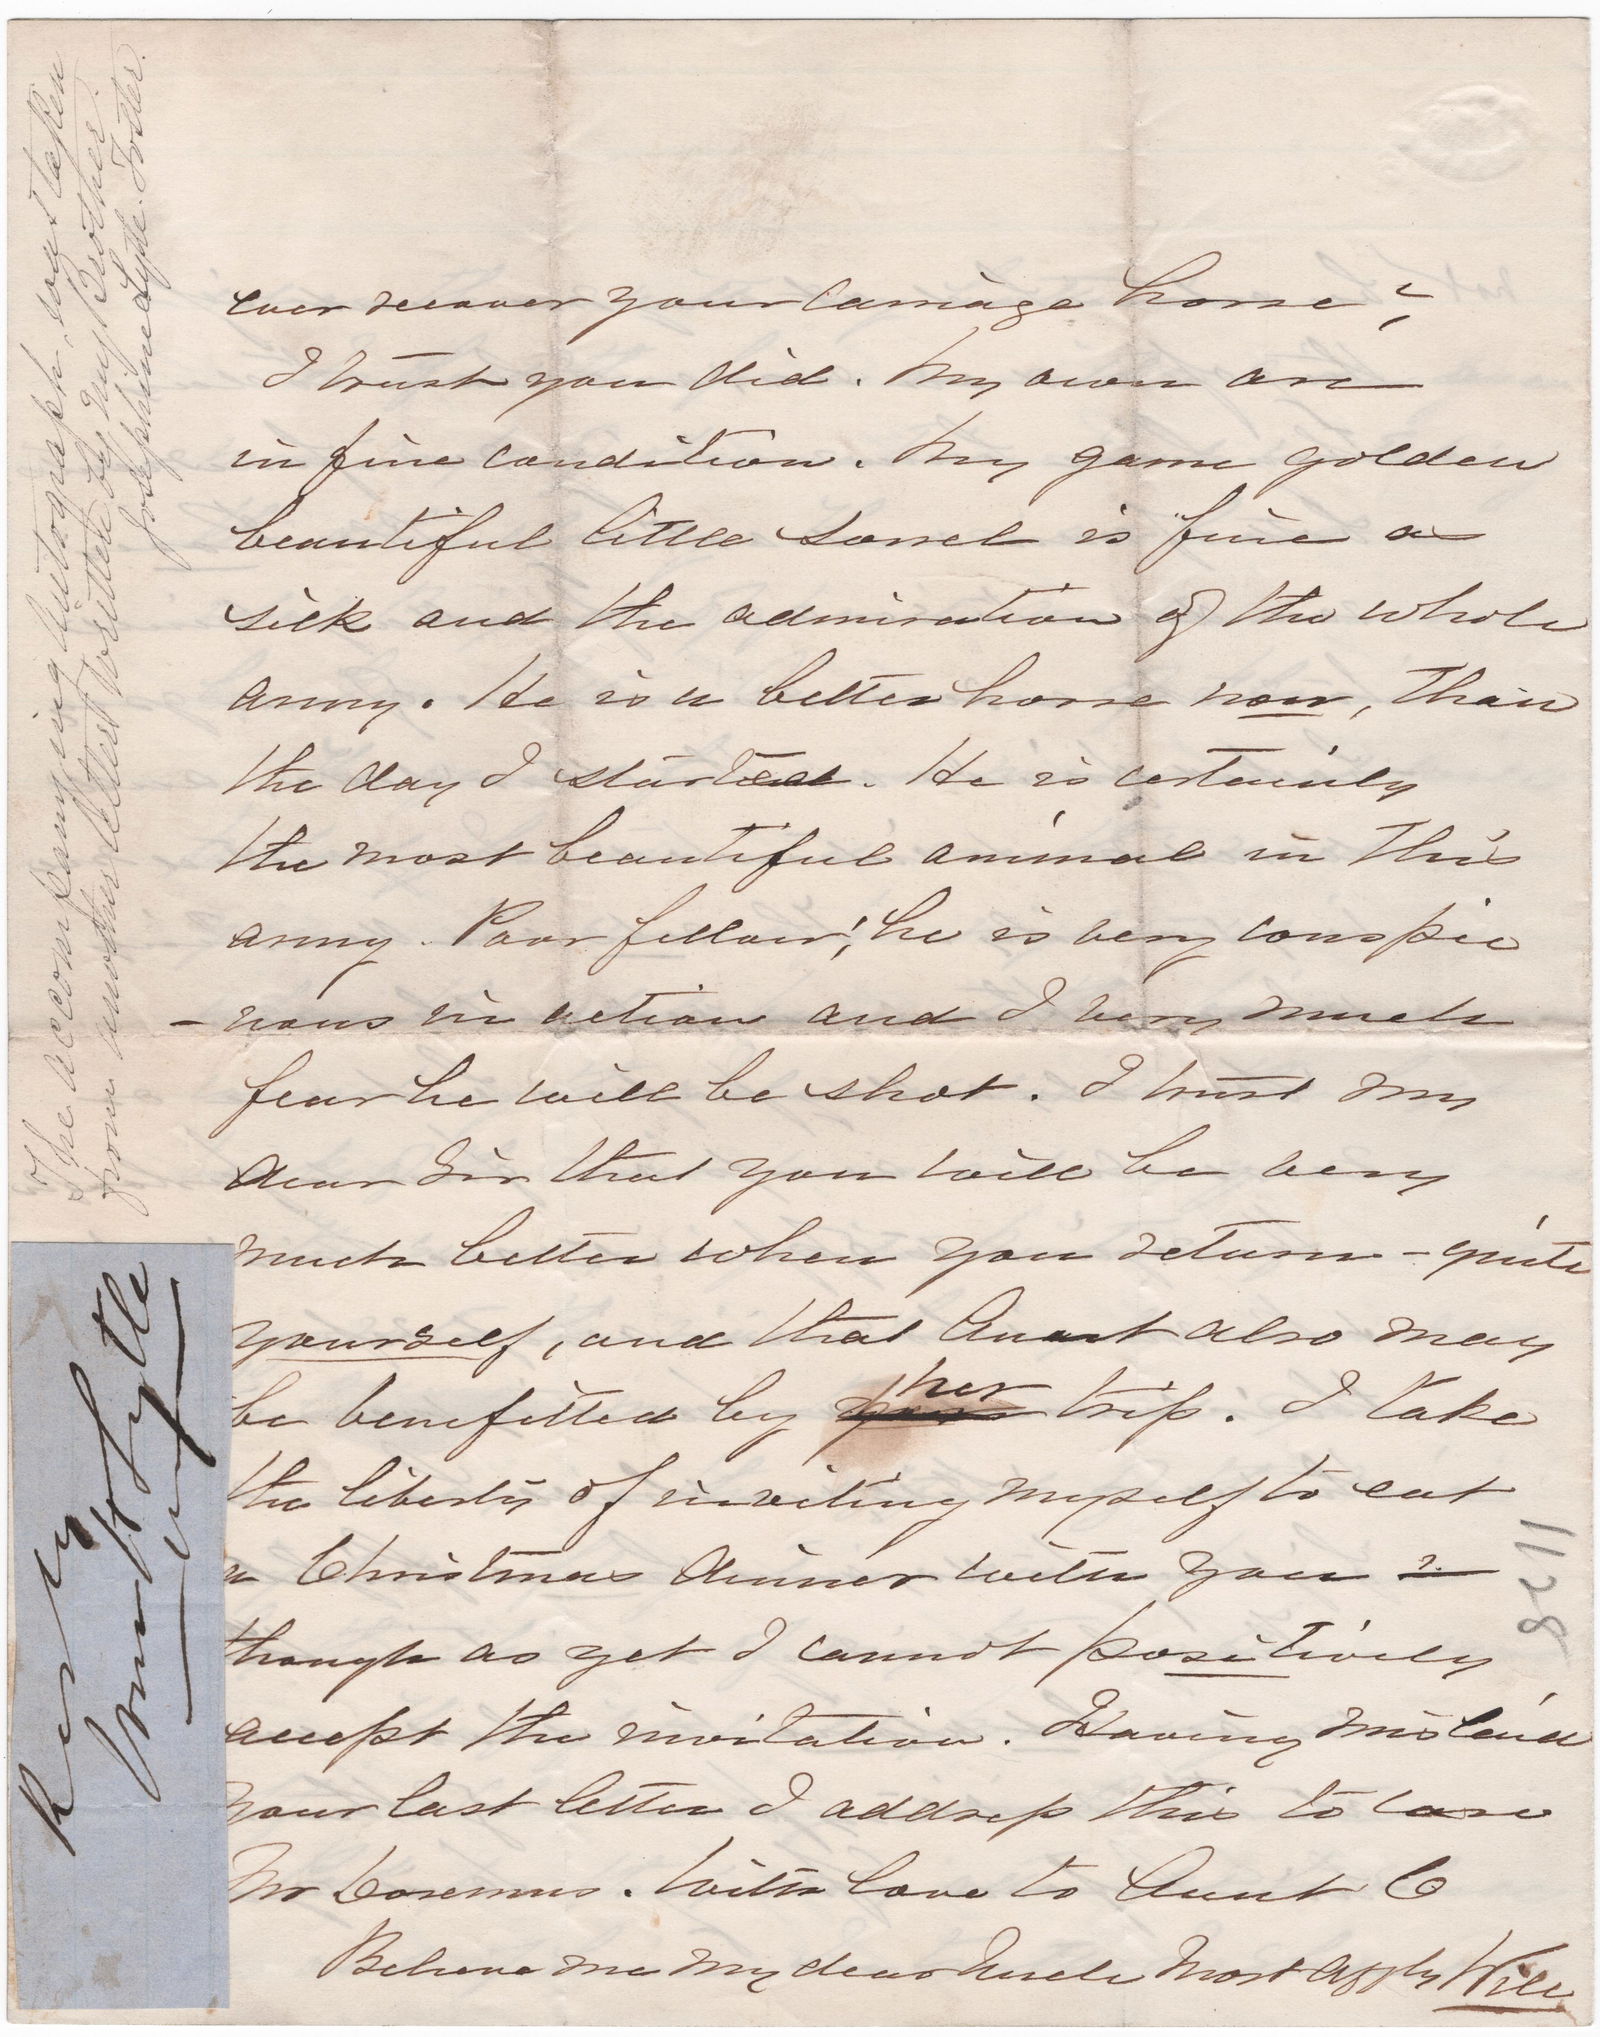 ever recover your carriage horse?
I trust you did. My own are
in fine condition. My game golden
beautiful little sorrel is fine as
silk and the admiration of the whole
army. He is a better horse now, than
the day I started. He is certainly
the most beautiful animal in this
army. Poor fellow!, he is very conspic
-uous in action and I very much
fear he will be shot. I trust my
dear Sir that you will be very
much better when you return - quite
yourself, and that Aunt also may
be benefitted by her trip. I take
the liberty of inviting myself to eat
a Christmas dinner with you -
though as yet I cannot positively
accept the invitation. Having mislaid
your last letter I address this to care
Mr Doremus. With love to Aunt C
Believe me my dear Uncle Most affly Will
The accompanying Autograph, was taken
from another letter written by my Brother.
Josephine Lytle Foster.
Resty
Wm H Lytle
1128